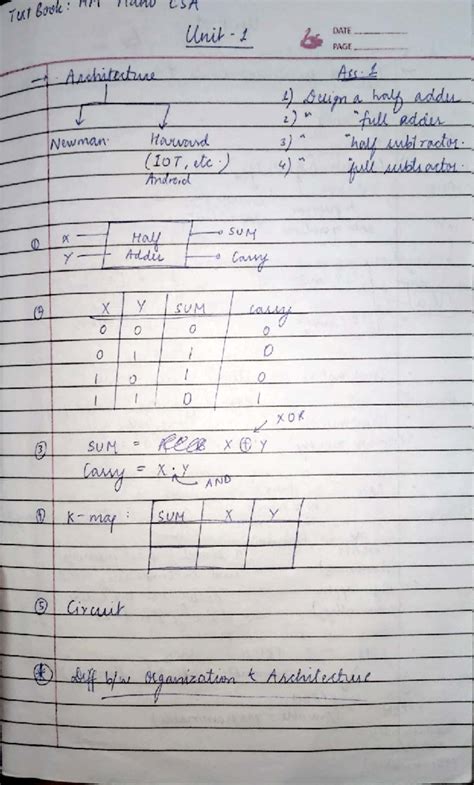 Text Book: MM Mano CSA
Unit - 1
DATE
PAGE
→ Architecture
Newman
Harvard
(IOT, etc.)
Android
Ass-1
1) Design a half adder
2) " " full adder
3) " " half subtractor.
4) " " full subtractor.
① X
Y
Half
Adder
SUM
Carry
② X Y SUM Carry
0 0 0 0
0 1 1 0
1 0 1 0
1 1 0 1
XOR
③ SUM = X ⊕ Y
Carry = X . Y
AND
④ K-map : SUM X Y
⑤ Circuit
Diff b/w Organization & Architecture